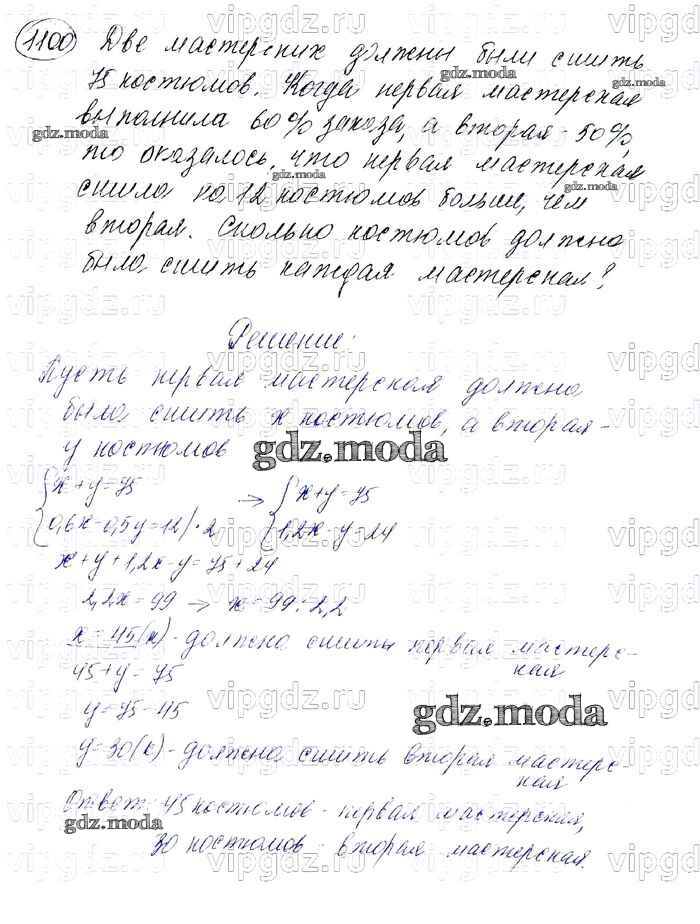 1100 Две мастерских должны были сшить
75 костюмов. Когда первая мастерская
выполнила 60% заказа, а вторая - 50%,
то оказалось, что первая мастерская
сшила на 12 костюмов больше, чем
вторая. Сколько костюмов должна
была сшить каждая мастерская?
Решение:
Пусть первая мастерская должна
была сшить x костюмов, а вторая -
y костюмов
{x+y=75 → {x+y=75
{0,6x-0,5y=12|·2 {1,2x-y=24
x+y+1,2x-y=75+24
2,2x=99 → x=99:2,2
x=45(к)-должна сшить первая мастерс-
ная
45+y=75
y=75-45
y=30(к)-должна сшить вторая мастерс-
ная
Ответ: 45 костюмов - первая мастерская,
30 костюмов - вторая мастерская.
gdz.moda
vipgdz.ru